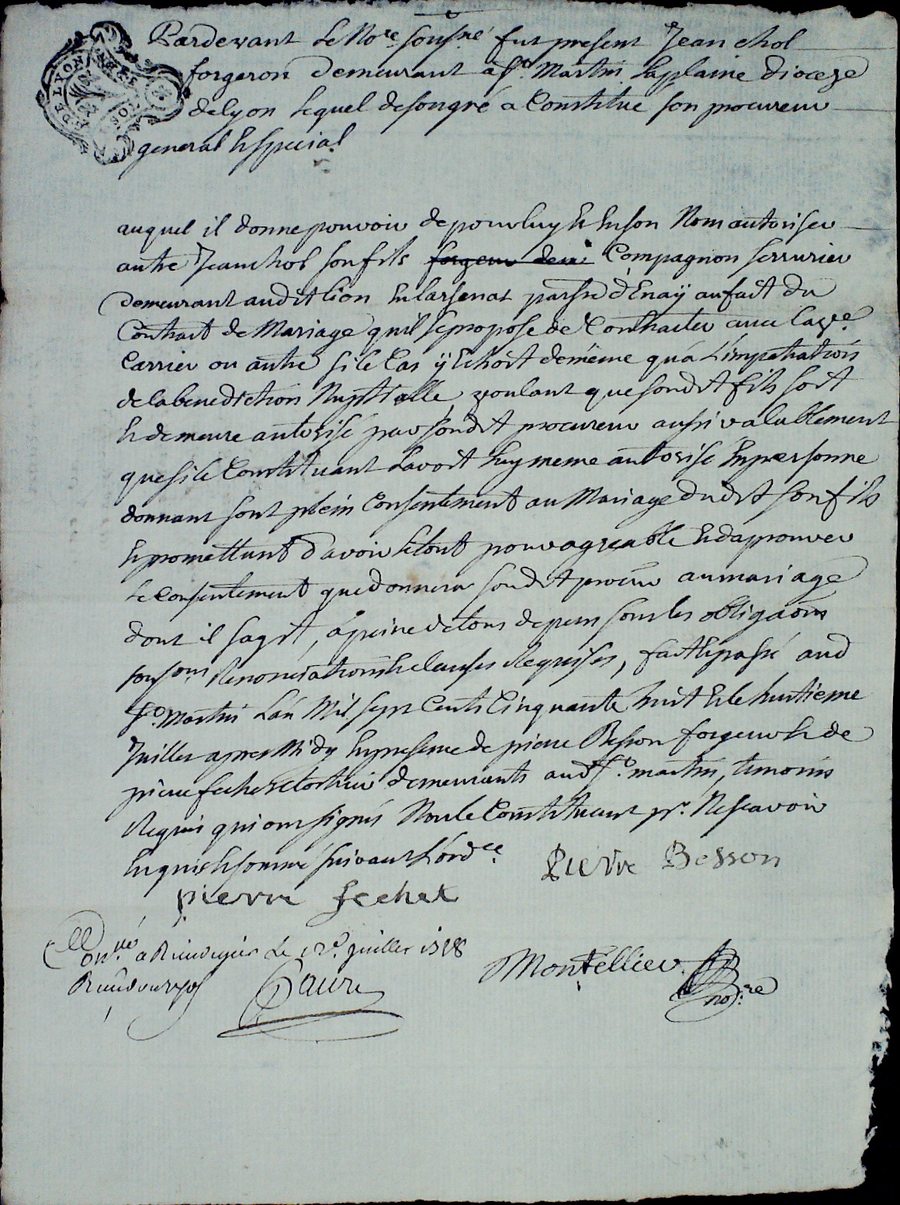 DE LYON
Pardevant Le No.re sousne fut present Jean chol
forgeron demeurant a st. Martin Laplaine dioceze
de lyon lequel de son gré a Constitue son procureur
general et special
auquel il donne pouvoir de pour luy et en son Nom autoriser
autre Jean chol son fils forgeur dem.t Compagnon serrurier
demeurant audit Lion en larsenal parsse d'Enaÿ au fait du
Contrait de Mariage qu'il se propose de Contracter avec
Carrier ou autre si le Cas ÿ Echoit de même qu'a L'impetration
de la benediction Nuptialle, voulant que sondit fils soit
et demeure autorisé par sondit procureur aussi valablement
que si le Constituant lavoit luy meme autorisé En personne
donnant sont plein Consentement au Mariage dudit son fils
et promettant d'avoir le tout pour agreable Et daprouver
Le Consentement que donnera sondit procur au mariage
dont il sagit, a peine de tous depens sous les obligaôns
renonciations et clauses Requises, fait et passé aud
st. Martin L'an Mil sept Cents Cinquante huit Et le huitieme
Juillet apres Midy En presence de pierre Besson forgeur et de
pierre fechet demeurants aud st. martin, temoins
Requis qui ont signés Non le Constituant pr. Ne scavoir
Enquis et sommé suivant l'ord.ce
Pierre Besson
pierre fechet
Con.llé a Rivedegier Le 12e. juillet 1758
Montellier no.re